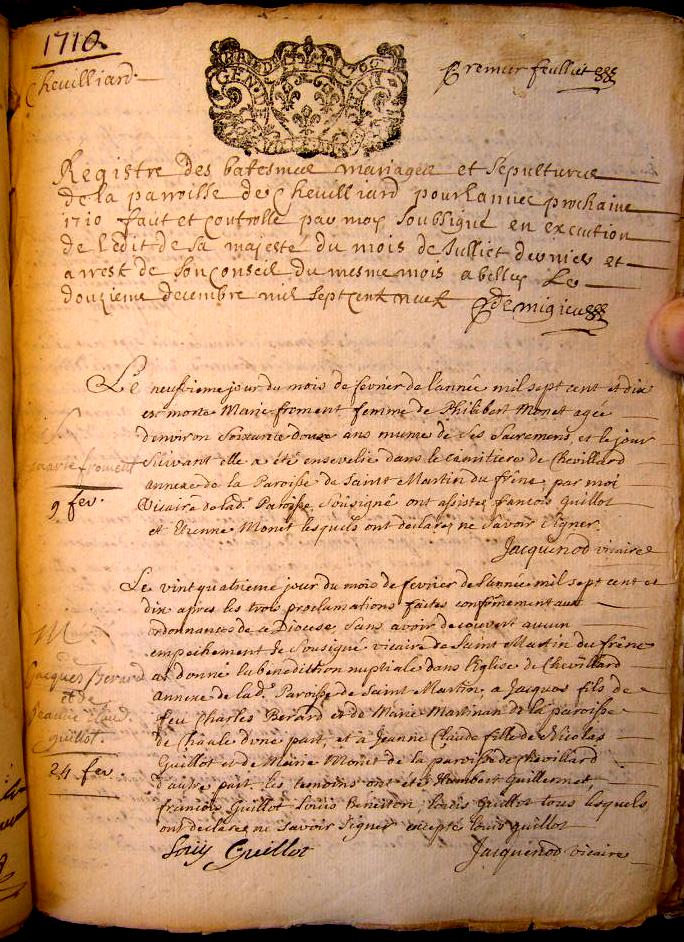 1710.
Chevilliard
Premier feullut
GEN DE
Registre des batesmes mariages et sepultures
de la parroisse de Chevilliard pour lannee prochaine
1710 faut et controlle par moy soubsigné en execution
de ledit de sa majeste du mois de Julliet dernier et
arrest de son conseil du mesme mois a belley Le
douzieme decembre mil sept cent neuf demigieu
Le neufvieme jour du mois de fevrier de l'année mil sept cent et dix
est morte Marie froment femme de Philibert Monet agée
d'environ soixante douze ans munie de ses sacremens, et le jour
suivant elle a été ensevelie dans le cemitiere de Chevillard
annexe de la Paroisse de Saint Martin du frêne, par moi
Vicaire de lad. Paroisse, sousigné ont assistes francois Guillot
et Etienne Monet lesquels ont declarés ne savoir signer.
Jacquenod vicaire
marie froment
9 fev.
Le vint quatrieme jour du mois de fevrier de l'année mil sept cent et
dix apres les trois proclamations faites conformement aux
ordonnances de ce Diocese, sans avoir decouvert aucun
empechement Je sousigné vicaire de Saint Martin du frêne
ai donné la benediction nuptiale dans l'eglise de Chevillard
annexe de lad. Paroisse de Saint Martin, a Jacques fils de
feu Charles Berard et de Marie Martinan de la paroisse
de d'une part, et a Jeanne Claude fille de Nicolas
Guillot et de Marie Monet de la paroisse de Chevillard
d'autre part, les temoins ont étés Humbert Guillermet
francois Guillot Louis Beneiton, Louis Guillot tous lesquels
ont declarés ne savoir signer excepte Louis guillot
Louis Guillot Jacquenod vicaire
M
de
Jacques Berard
et de
Jeanne Claud.
guillot.
24 fev.